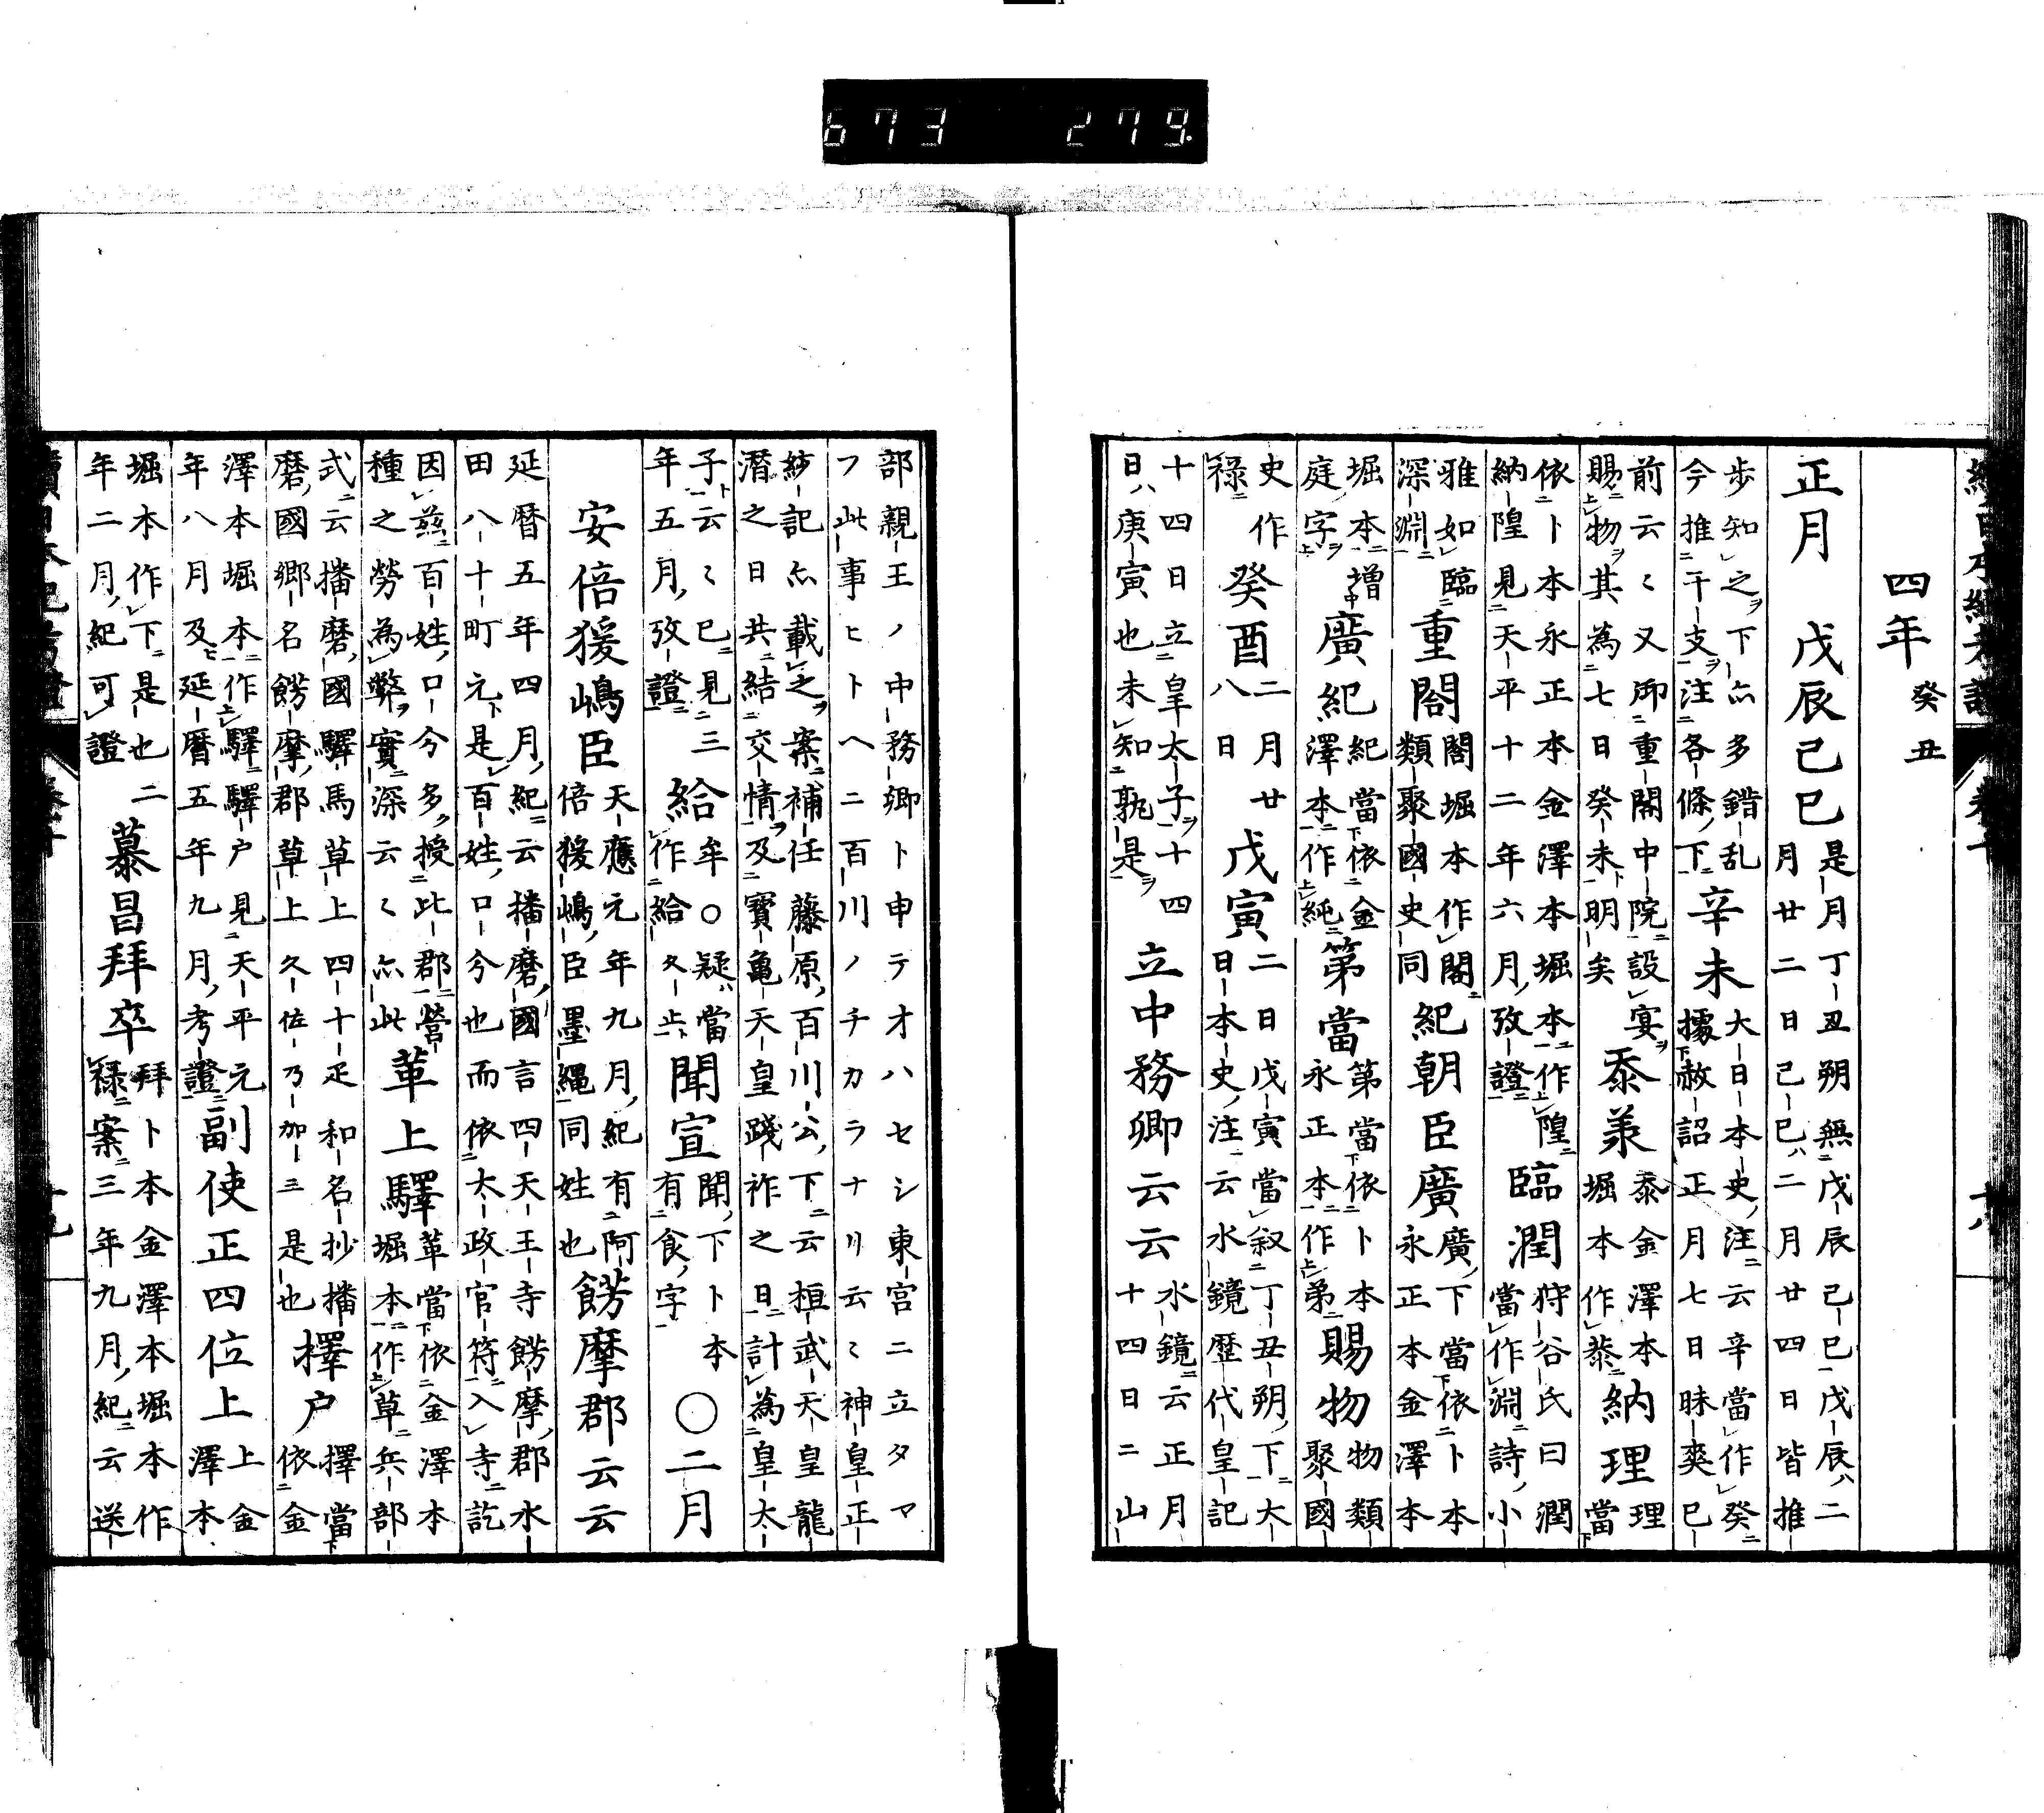 673 279.
四年 癸丑
正月 戊辰己巳 是月丁丑朔無戊辰己巳戊辰ハ二
月廿二日己巳ハ二月廿四日皆推
歩知之下亦多錯乱
今推干支注各條下 辛未 大日本史注云辛當作癸
據赦詔正月七日昧爽已
前云〻又御重閣中院設宴
賜物其為七日癸未明矣 忝羕 忝金澤本
堀本作恭 納理 理當
依卜本永正本金澤本堀本作隍
納隍見天平十二年六月攷證 臨潤 狩谷氏曰潤
當作淵詩小
雅如臨
深淵 重閤 閤堀本作閣
類聚國史同 紀朝臣廣 廣下當依卜本
永正本金澤本
堀本増
庭字 廣紀 紀當依金
澤本作純 第當 第當依卜本
永正本作弟 賜物 物類
聚國
史作
禄 癸酉 二月廿
八日 戊寅 二日戊寅當叙丁丑朔下大
日本史注云水鏡歴代皇記
十四日立皇太子十四
日ハ庚寅也未知孰是 立中務卿云云 水鏡云正月
十四日ニ山
部親王ノ中務卿ト申テオハセシ東宮ニ立タマ
フ此事ヒトヘニ百川ノチカラナリ云〻神皇正
紗記亦載之案補任藤原百川公下云桓武天皇龍
潜之日共結交情及寳亀天皇踐祚之日計為皇太
子云〻已見三
年五月攷證 給 牟○疑當
作給久止 聞宣 聞下卜本
有食字 ○二月
安倍猨嶋臣 天應元年九月紀有阿
倍猨嶋臣墨繩同姓也 餝摩郡云云
延暦五年四月紀云播磨國言四天王寺餝摩郡水
田八十町元是百姓口分也而依太政官符入寺訖
因茲百姓口分多授比郡營
種之勞為弊實深云〻亦此 草上驛 草當依金澤本
堀本作草兵部
式云播磨國驛馬草上四十疋和名抄播
磨國郷名餝摩郡草上久佐乃加三是也 擇戸 擇當
依金
澤本堀本作驛驛戸見天平元
年八月及延暦五年九月考證 副使正四位上 上金
澤本
堀本作下是也二
年二月紀可證 慕昌拜卒 拜卜本金澤本堀本作
禄案三年九月紀云送